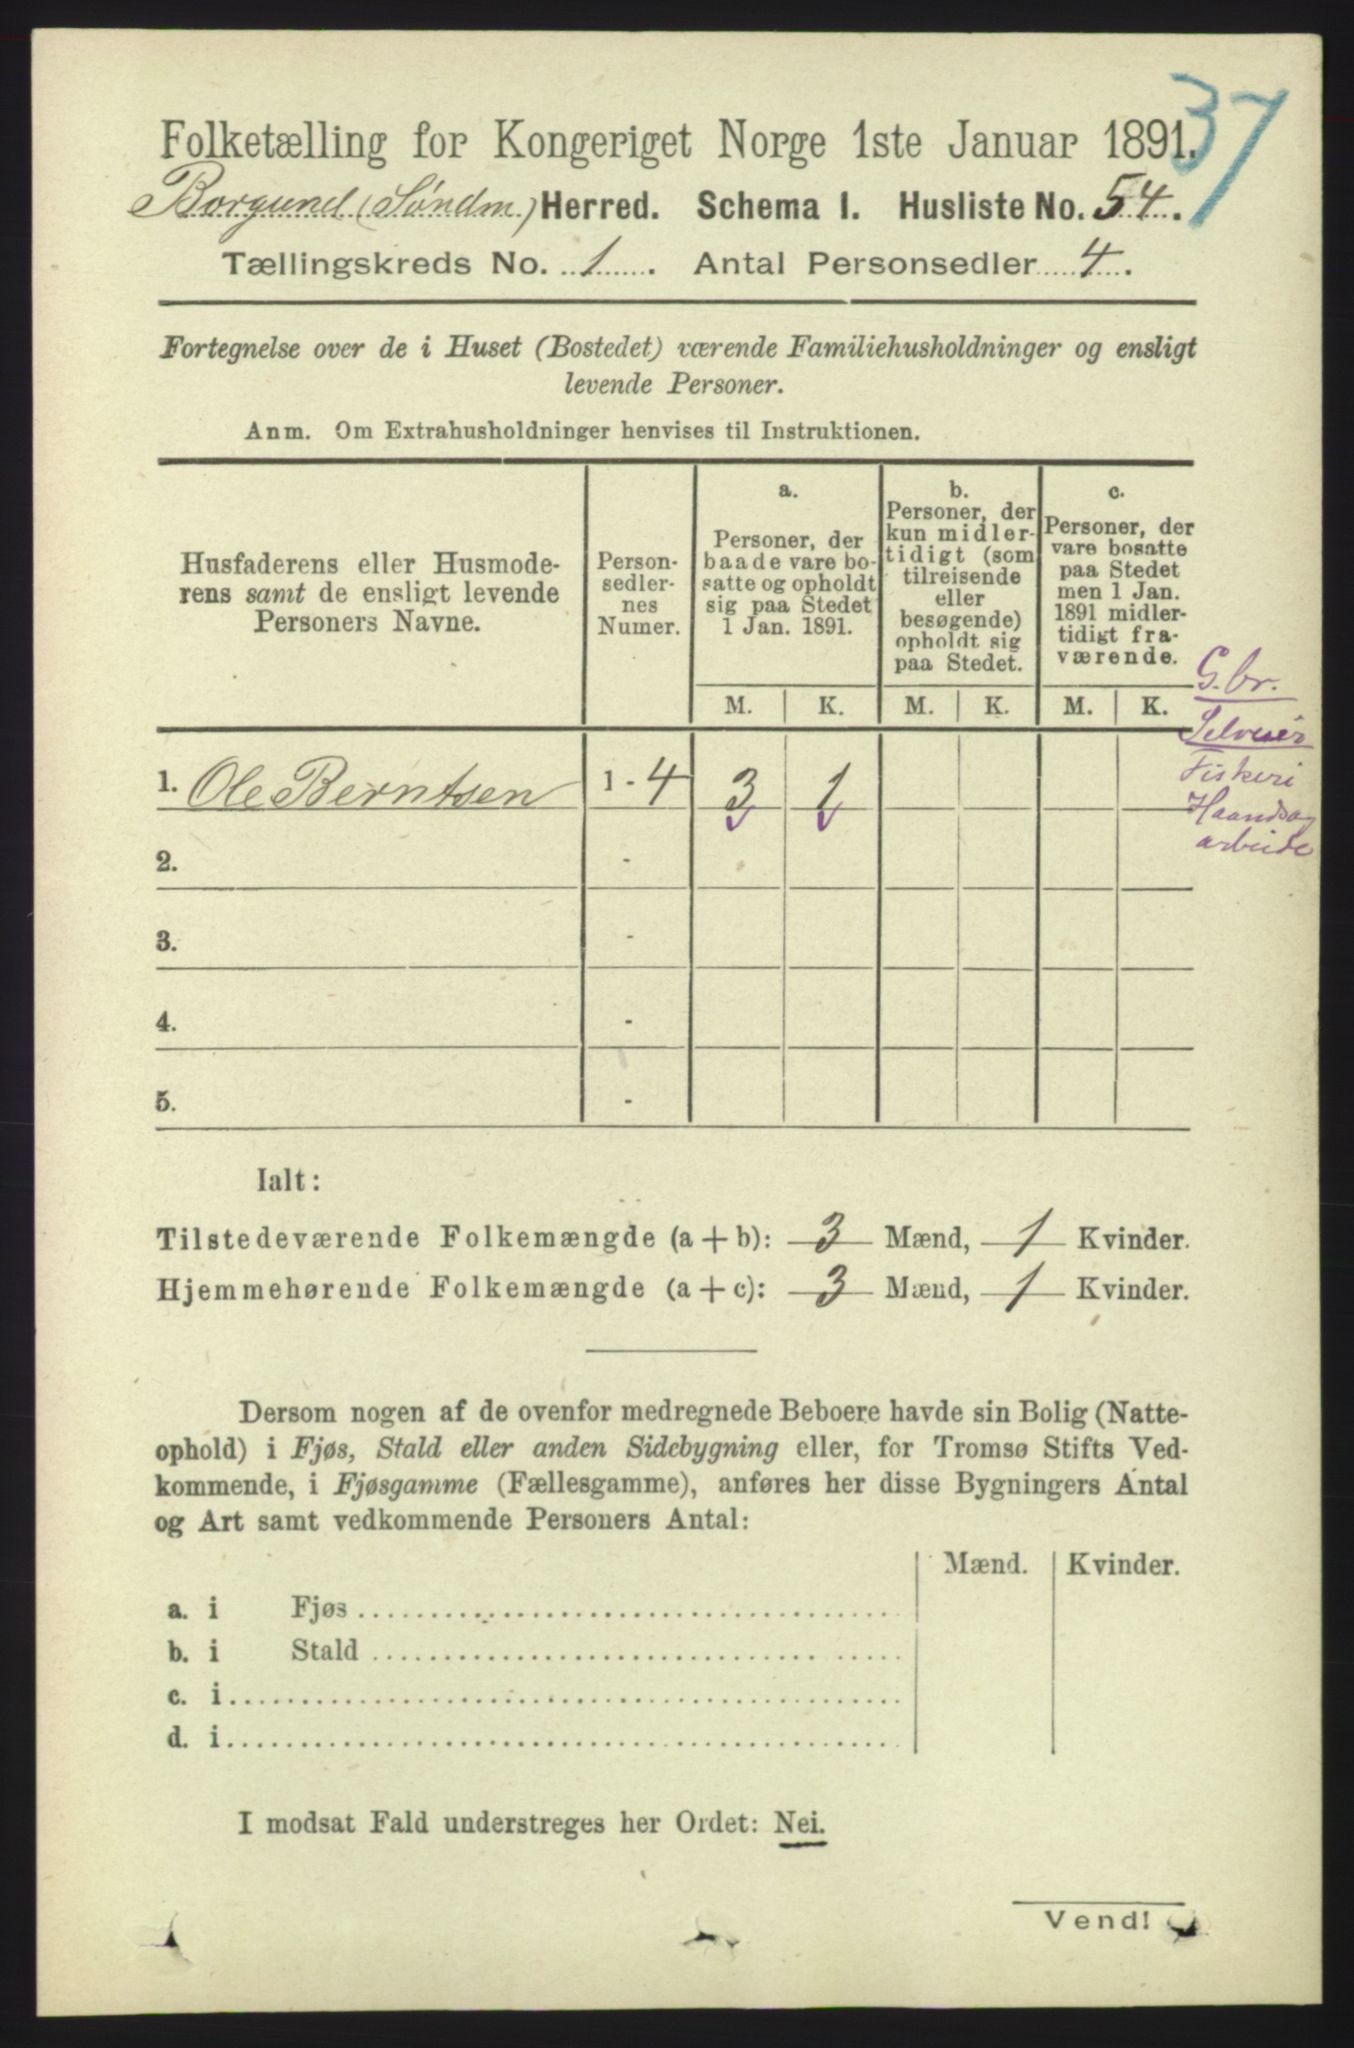 37
Folketælling for Kongeriget Norge 1ste Januar 1891.
Borgund (Søndm.) Herred. Schema I. Husliste No. 54.
Tællingskreds No. 1. Antal Personsedler 4.
Fortegnelse over de i Huset (Bostedet) værende Familiehusholdninger og ensligt
levende Personer.
Anm. Om Extrahusholdninger henvises til Instruktionen.
Husfaderens eller Husmode-
rens samt de ensligt levende
Personers Navne.
Person-
sedler-
nes
Numer.
a.
Personer, der
baade vare bo-
satte og opholdt
sig paa Stedet
1 Jan. 1891.
b.
Personer, der
kun midler-
tidigt (som
tilreisende
eller
besøgende)
opholdt sig
paa Stedet.
c.
Personer, der
vare bosatte
paa Stedet
men 1 Jan.
1891 midler-
tidigt fra-
værende.
M. K. M. K. M. K.
G.br.
Selveier
Fiskeri
Haands
arbeide
1. Ole Berntsen 1 - 4 3 1
2. -
3. -
4. -
5. -
Ialt:
Tilstedeværende Folkemængde (a + b): 3 Mænd, 1 Kvinder.
Hjemmehørende Folkemængde (a + c): 3 Mænd, 1 Kvinder.
Dersom nogen af de ovenfor medregnede Beboere havde sin Bolig (Natte-
ophold) i Fjøs, Stald eller anden Sidebygning eller, for Tromsø Stifts Ved-
kommende, i Fjøsgamme (Fællesgamme), anføres her disse Bygningers Antal
og Art samt vedkommende Personers Antal:
Mænd. Kvinder.
a. i Fjøs
b. i Stald
c. i
d. i
I modsat Fald understreges her Ordet: Nei.
Vend!